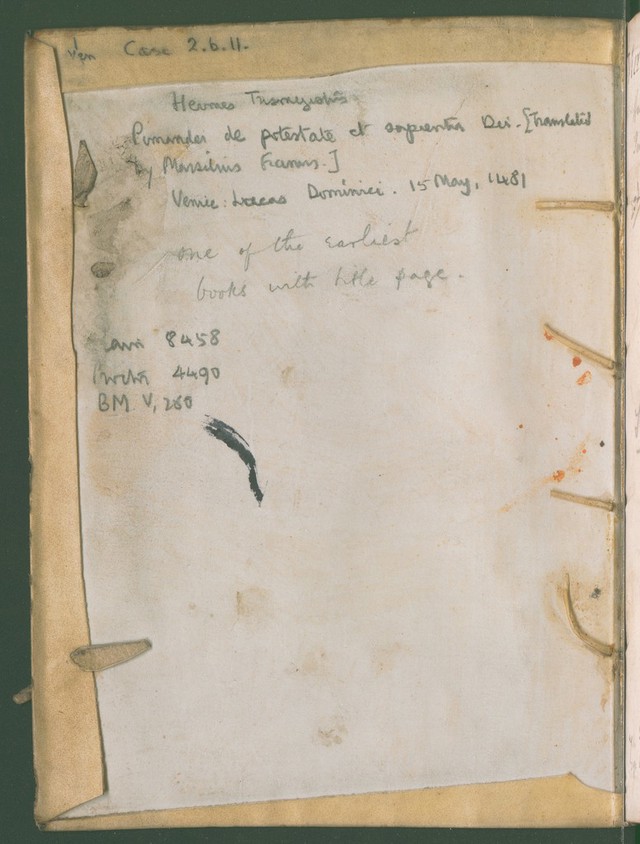 Ven Case 2.6.11.
Hermes Trismegistus
Pimander de potestate et sapientia Dei. [Translated
by Marsilius Ficinus.]
Venice: Lucas Dominici. 15 May, 1481
one of the earliest
books with title page.
8458
Proctor 4490
BM V, 280